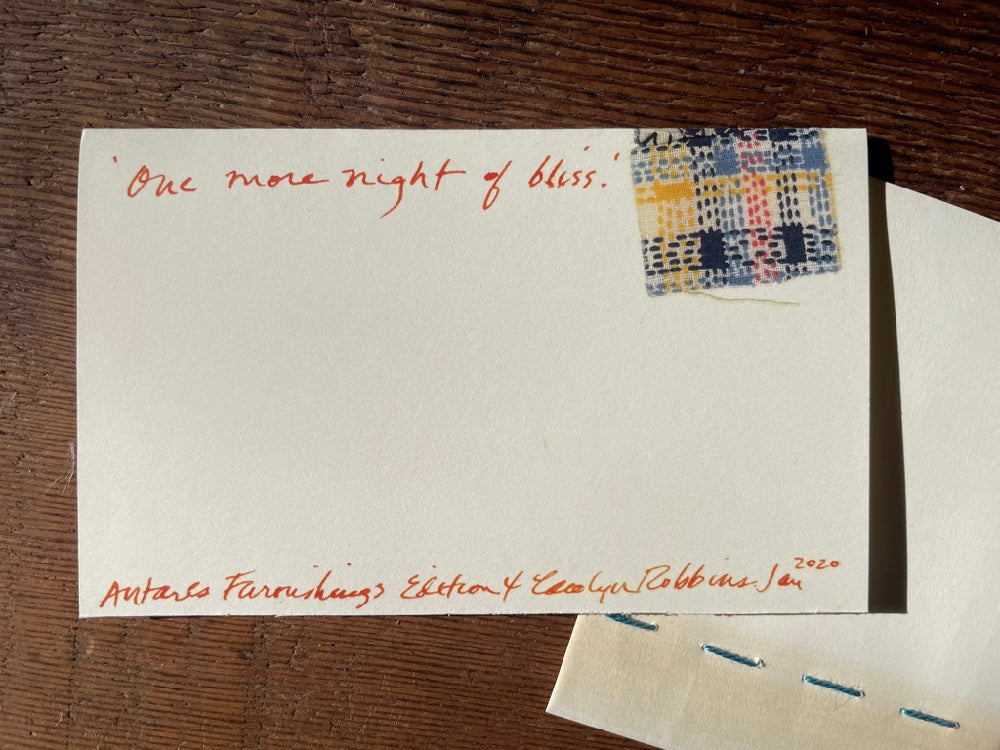 'One more night of bliss.'
Antares Furnishings Edition 4 Robbins Jan 2020